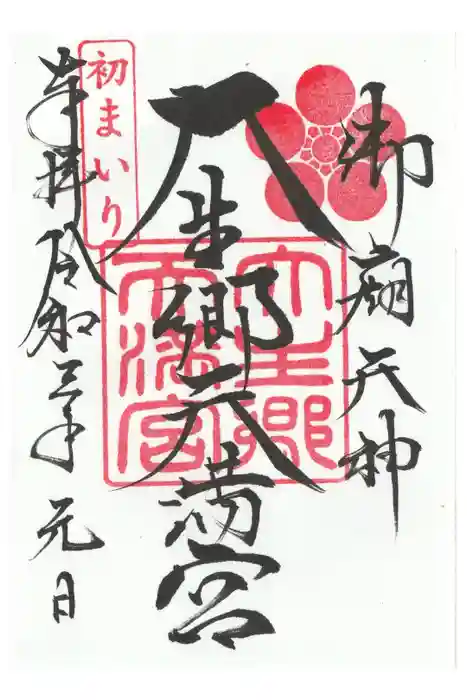 御廟天神
大生郷天満宮
大生郷
天満宮
初まいり
奉拝 令和三年 元日